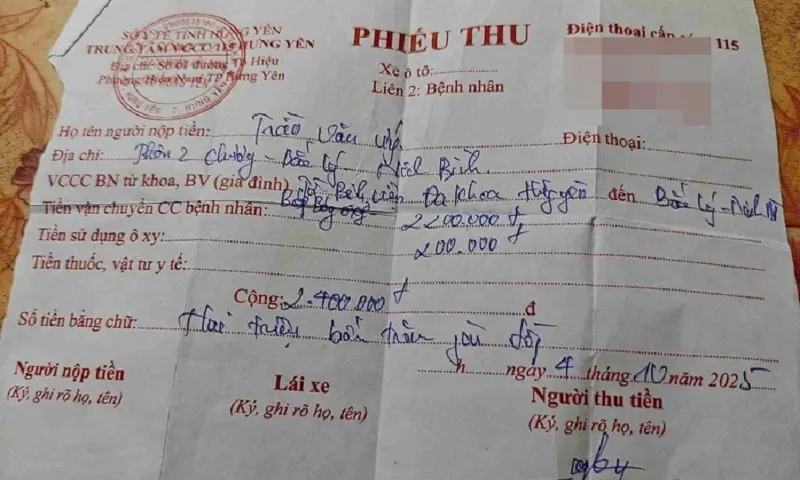 SỞ Y TẾ TỈNH HƯNG YÊN
TRUNG TÂM VCCC 115 HƯNG YÊN
Địa chỉ: Số 01 đường Tô Hiệu
Phường Hiến Nam, TP Hưng Yên
HƯNG YÊN
PHIẾU THU
Xe ô tô:
Liên 2: Bệnh nhân
Điện thoại cấp 115
Họ tên người nộp tiền: Trần Văn
Điện thoại:
Địa chỉ: Thôn 2 - Bắc Lý - Ninh Bình
VCCC BN từ khoa, BV (gia đình) Bệnh viện Đa khoa Hưng Yên đến Bắc Lý - Ninh
Tiền vận chuyển CC bệnh nhân: 2200.000 đ
Tiền sử dụng ô xy: 200.000 đ
Tiền thuốc, vật tư y tế:
Cộng: 2.400.000 đ đ
Số tiền bằng chữ: Hai triệu bốn trăm đồng
h ngày 4 tháng 10 năm 2025
Người nộp tiền
(Ký, ghi rõ họ, tên)
Lái xe
(Ký, ghi rõ họ, tên)
Người thu tiền
(Ký, ghi rõ họ, tên)